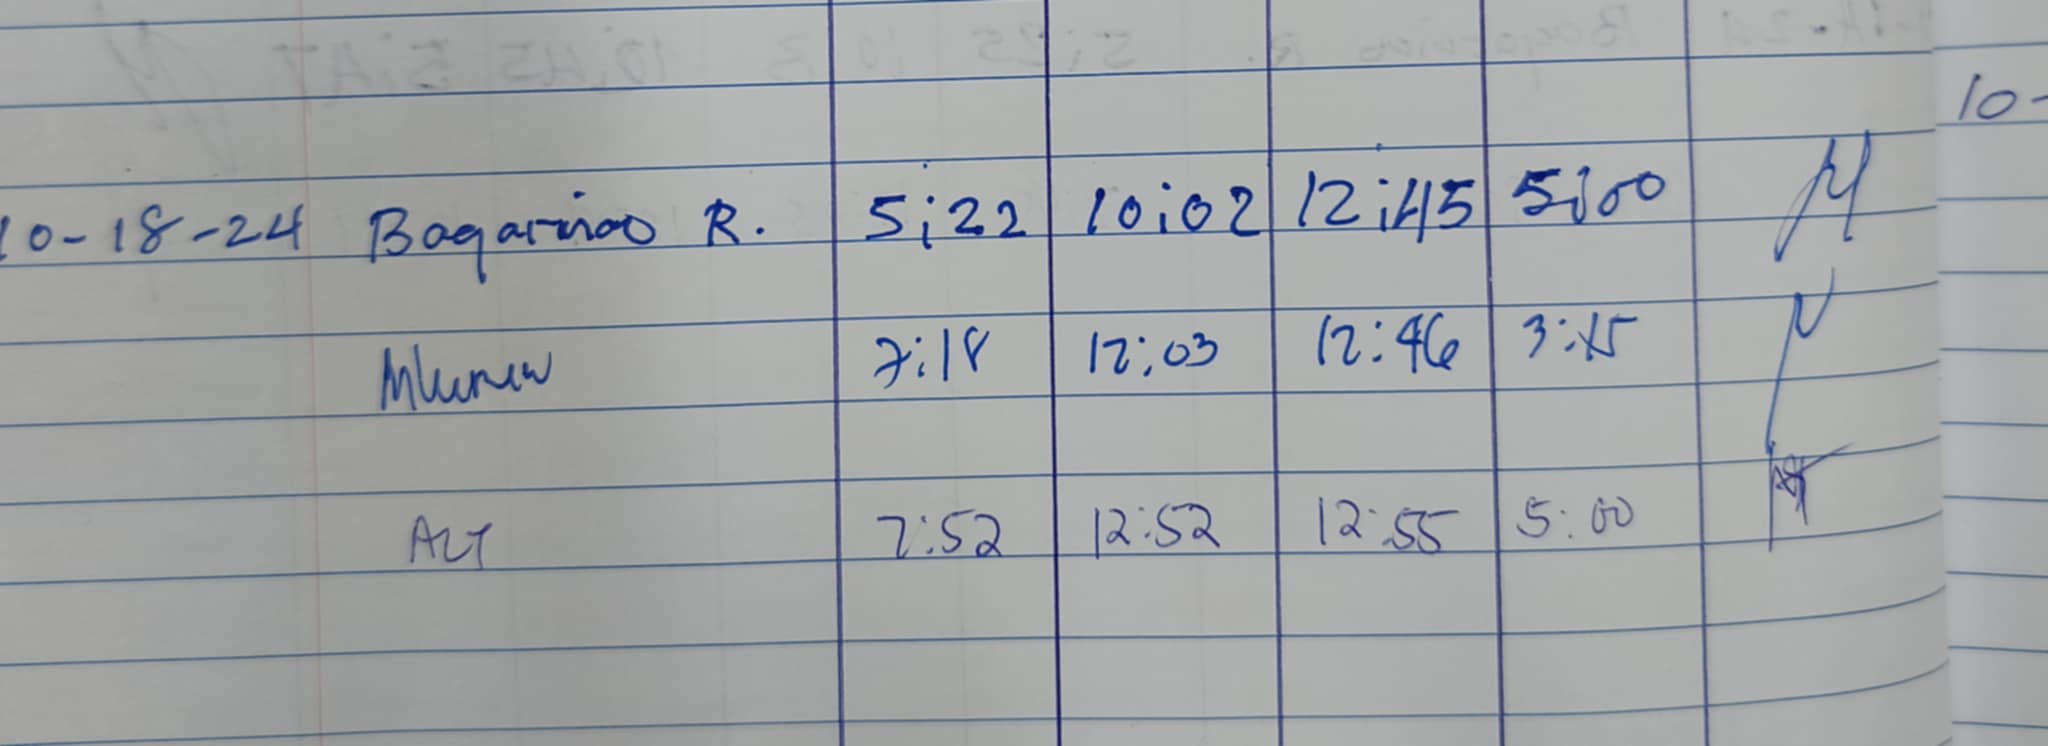 10-
10-18-24 Bagarinao R. 5:22 10:02 12:45 5:00
7:18 12:03 12:46 3:15
ALT 7:52 12:52 12:55 5:00